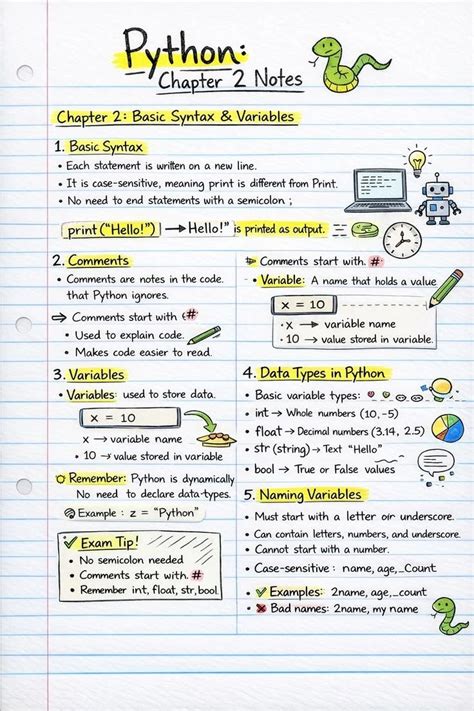 Python:
Chapter 2 Notes
Chapter 2: Basic Syntax & Variables
1. Basic Syntax
• Each statement is written on a new line.
• It is case-sensitive, meaning print is different from Print.
• No need to end statements with a semicolon ;
print ("Hello!") → Hello!" is printed as output.
2. Comments
• Comments are notes in the code.
that Python ignores.
⇒ Comments start with (#
• Used to explain code.
• Makes code easier to read.
3. Variables
• Variables: used to store data.
x = 10
x → variable name
• 10 → value stored in variable
Remember: Python is dynamically
No need to declare data-types.
Example : z = "Python"
Exam Tip!
• No semicolon needed
• Comments start with. #
• Remember int, float, str, bool.
Comments start with. #
• Variable: A name that holds a value
x = 10
• x → variable name
• 10 → value stored in variable.
4. Data Types in Python
• Basic variable types:
• int → Whole numbers (10, -5)
• float → Decimal numbers (3.14, 2.5)
• str (string) → Text "Hello"
• bool → True or False values
5. Naming Variables
• Must start with a letter or underscore.
• Can contain letters, numbers, and underscore.
• Cannot start with a number.
• Case-sensitive : name, age,_Count
• ✓ Examples: 2name, age,_count
• ✗ Bad names: 2name, my name